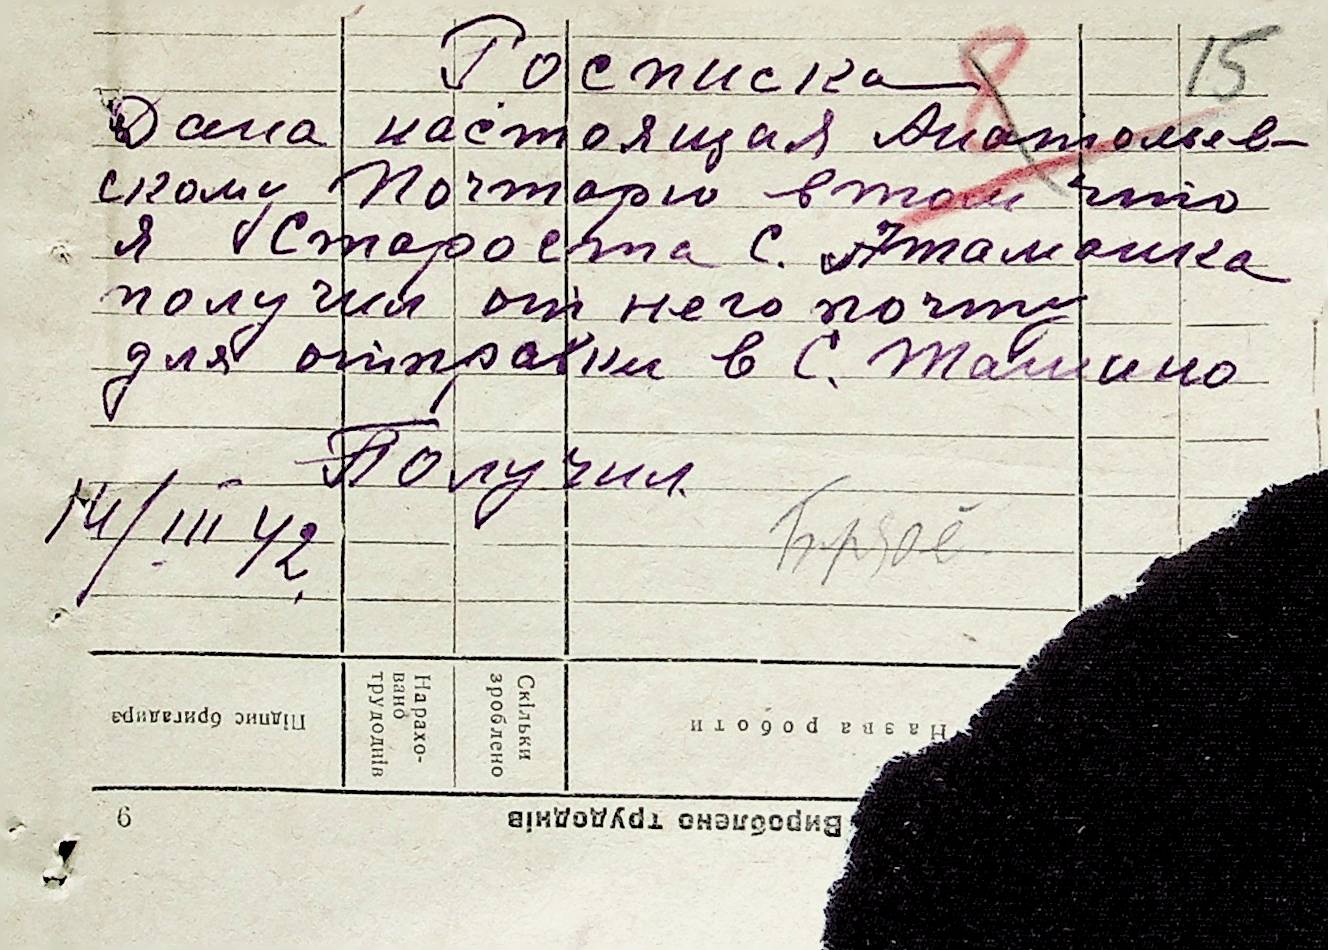 Росписка 8 15
Дана настоящая Анатольев-
скому Почтарю в том что
я Староста С. Атаманка
получил от него почту
для отправки в С. Ташино
Получил.
14/III 42.
Підпис бригадира
Нарахо-
вано
трудоднів
Скільки
зроблено
Назва роботи
9 Вироблено трудоднів